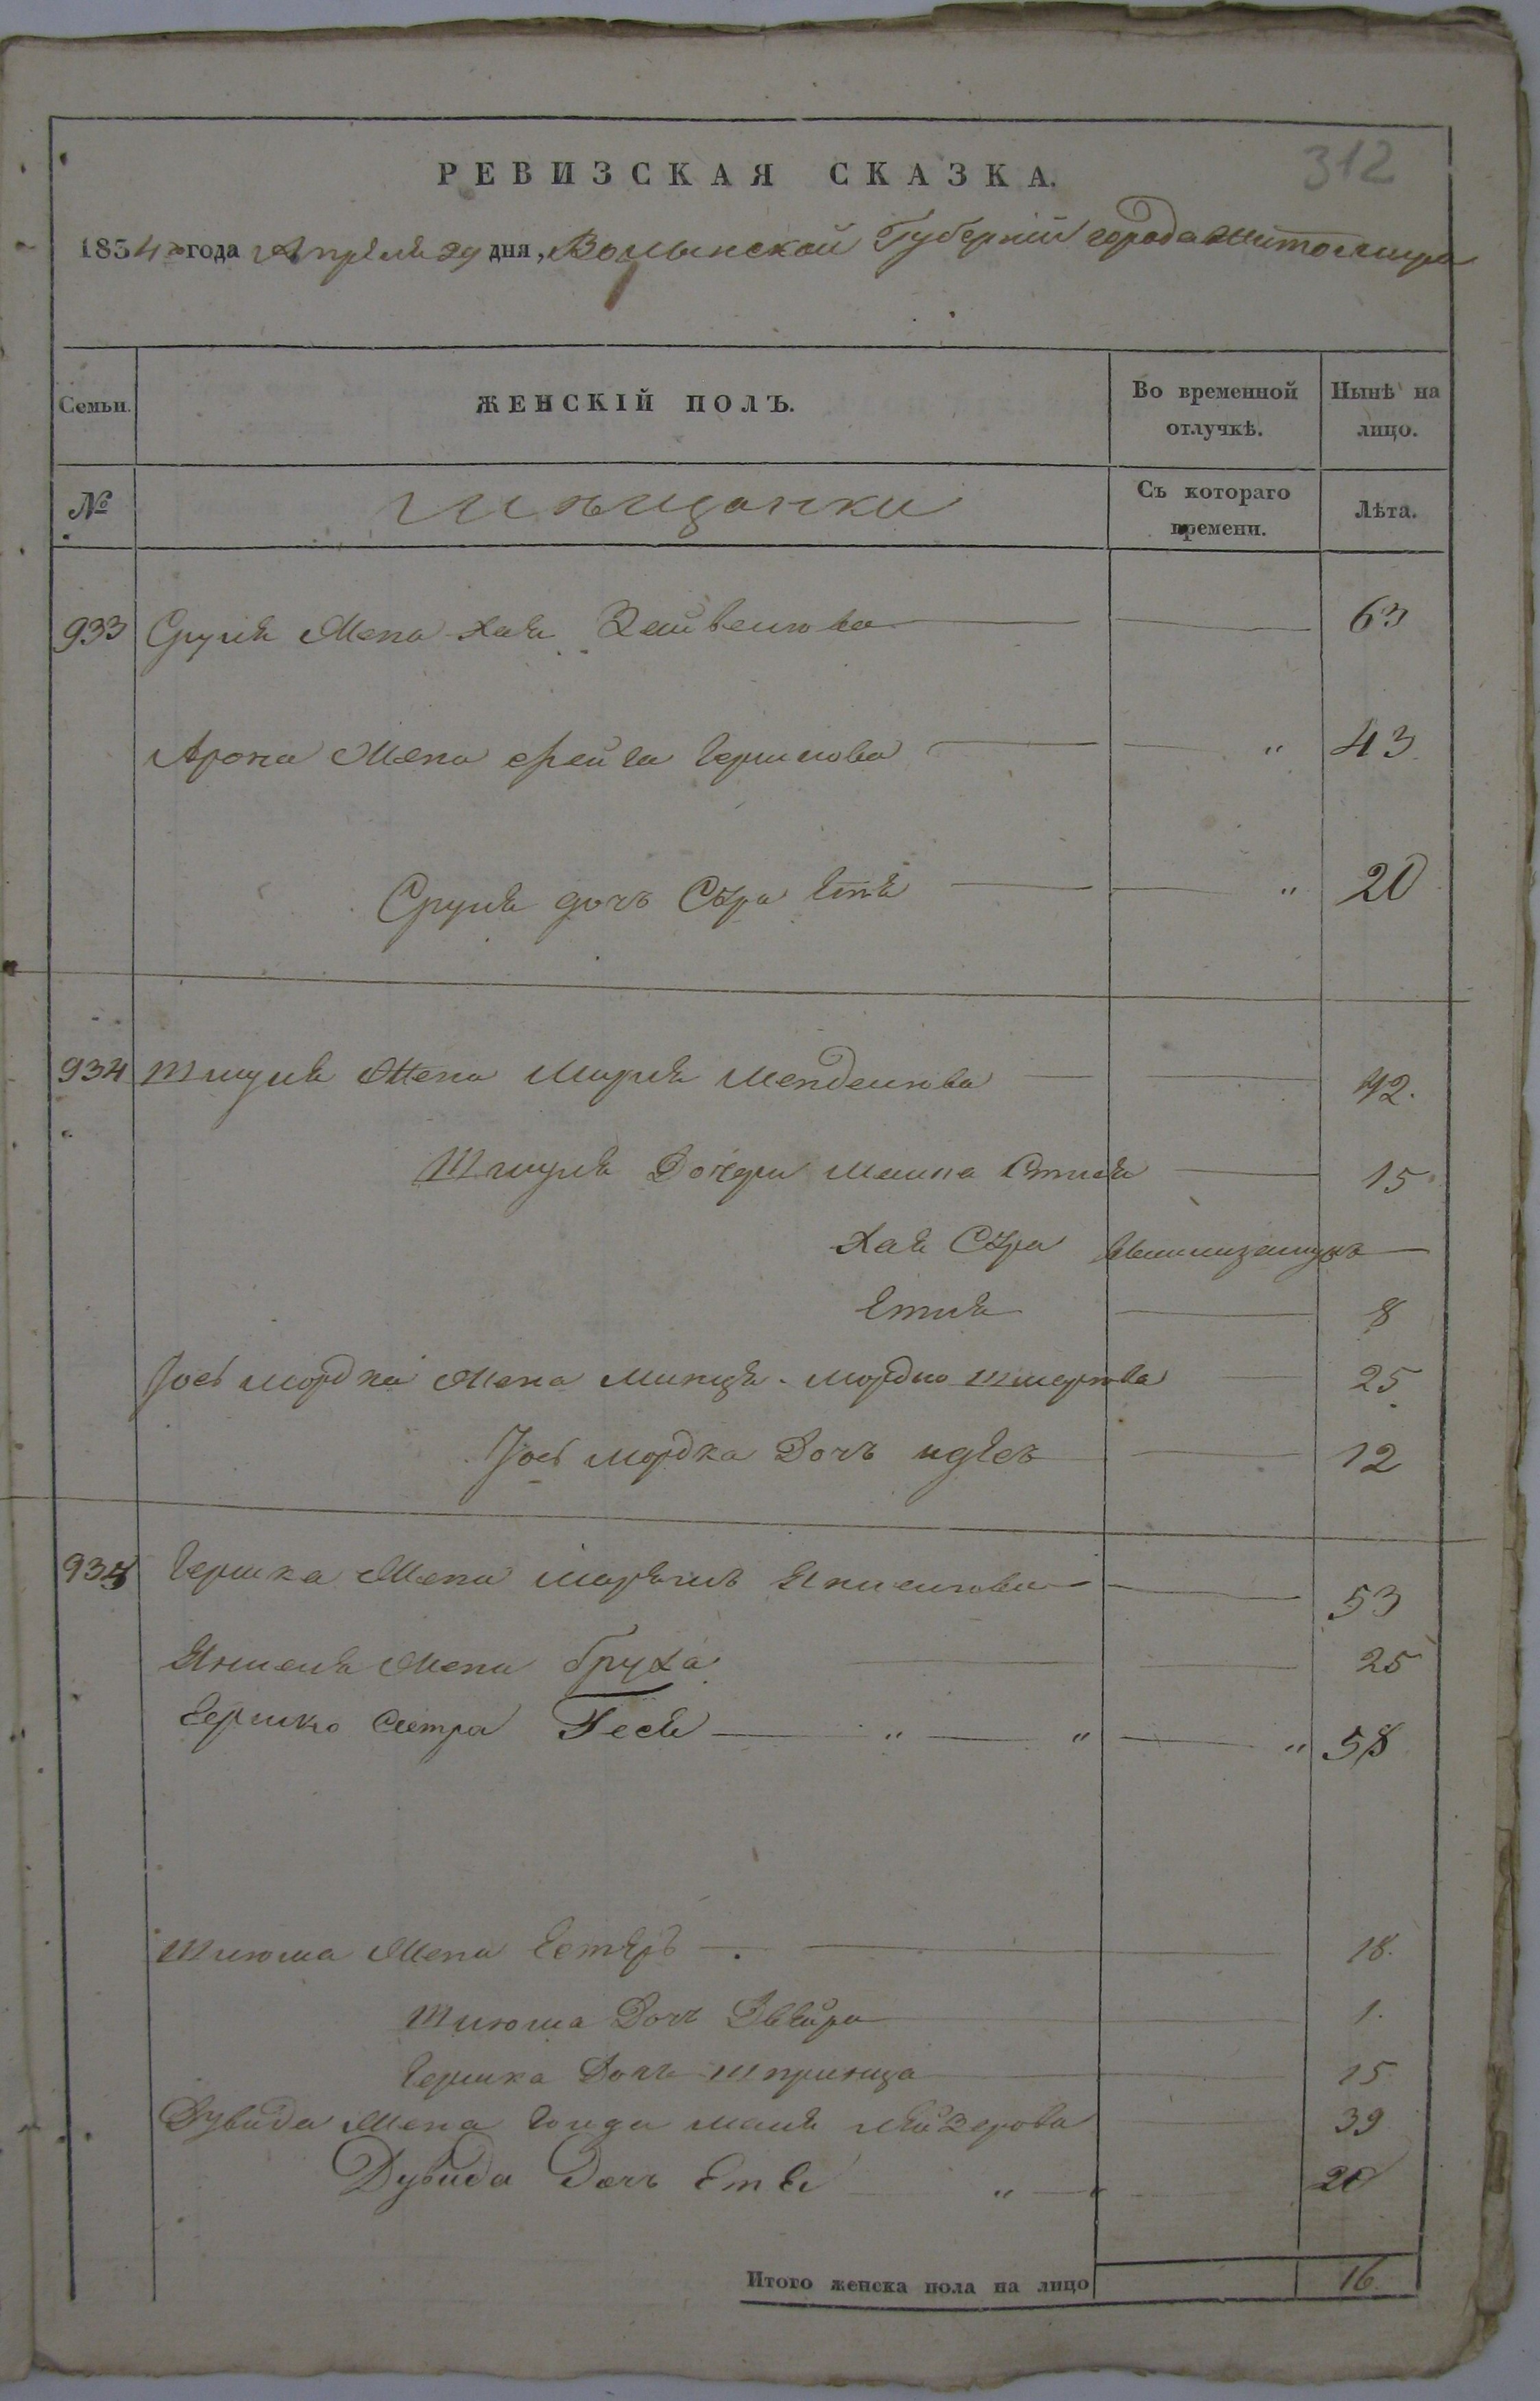 312
РЕВИЗСКАЯ СКАЗКА.
1854 года Апреля 29 дня, Волынской Губернии города Житомира
Семьи. ЖЕНСКІЙ ПОЛЪ. Во временной отлучкѣ. Нынѣ на лицо.
№ Мѣщанки Съ котораго времени. Лѣта.
933 Сруля Жена Хая Зейвелюва 63
Арона Жена Фейга Гершкова " 43
Сруля дочь Сура Етя " 20
934 Шмуля Жена Мирля Менделюва 42.
Шмуля Дочери 15
Хая Сура
Етля 8
Іось Мордка Жена Минця Мордко 25
Іось Мордка Дочь Идесъ 12
935 Гершка Жена Марьямъ 53
Яншеля Жена Бруха 25
Гершко Сестра Геся " " " 58
Шлюма Жена Естеръ 18.
Шлюма Дочь Двейра 1.
Гершка Дочь Шпринца 15
Дувида Жена Голда Лейзерова 39
Дувида Дочь Етя " " 20
Итого женска пола на лицо 16